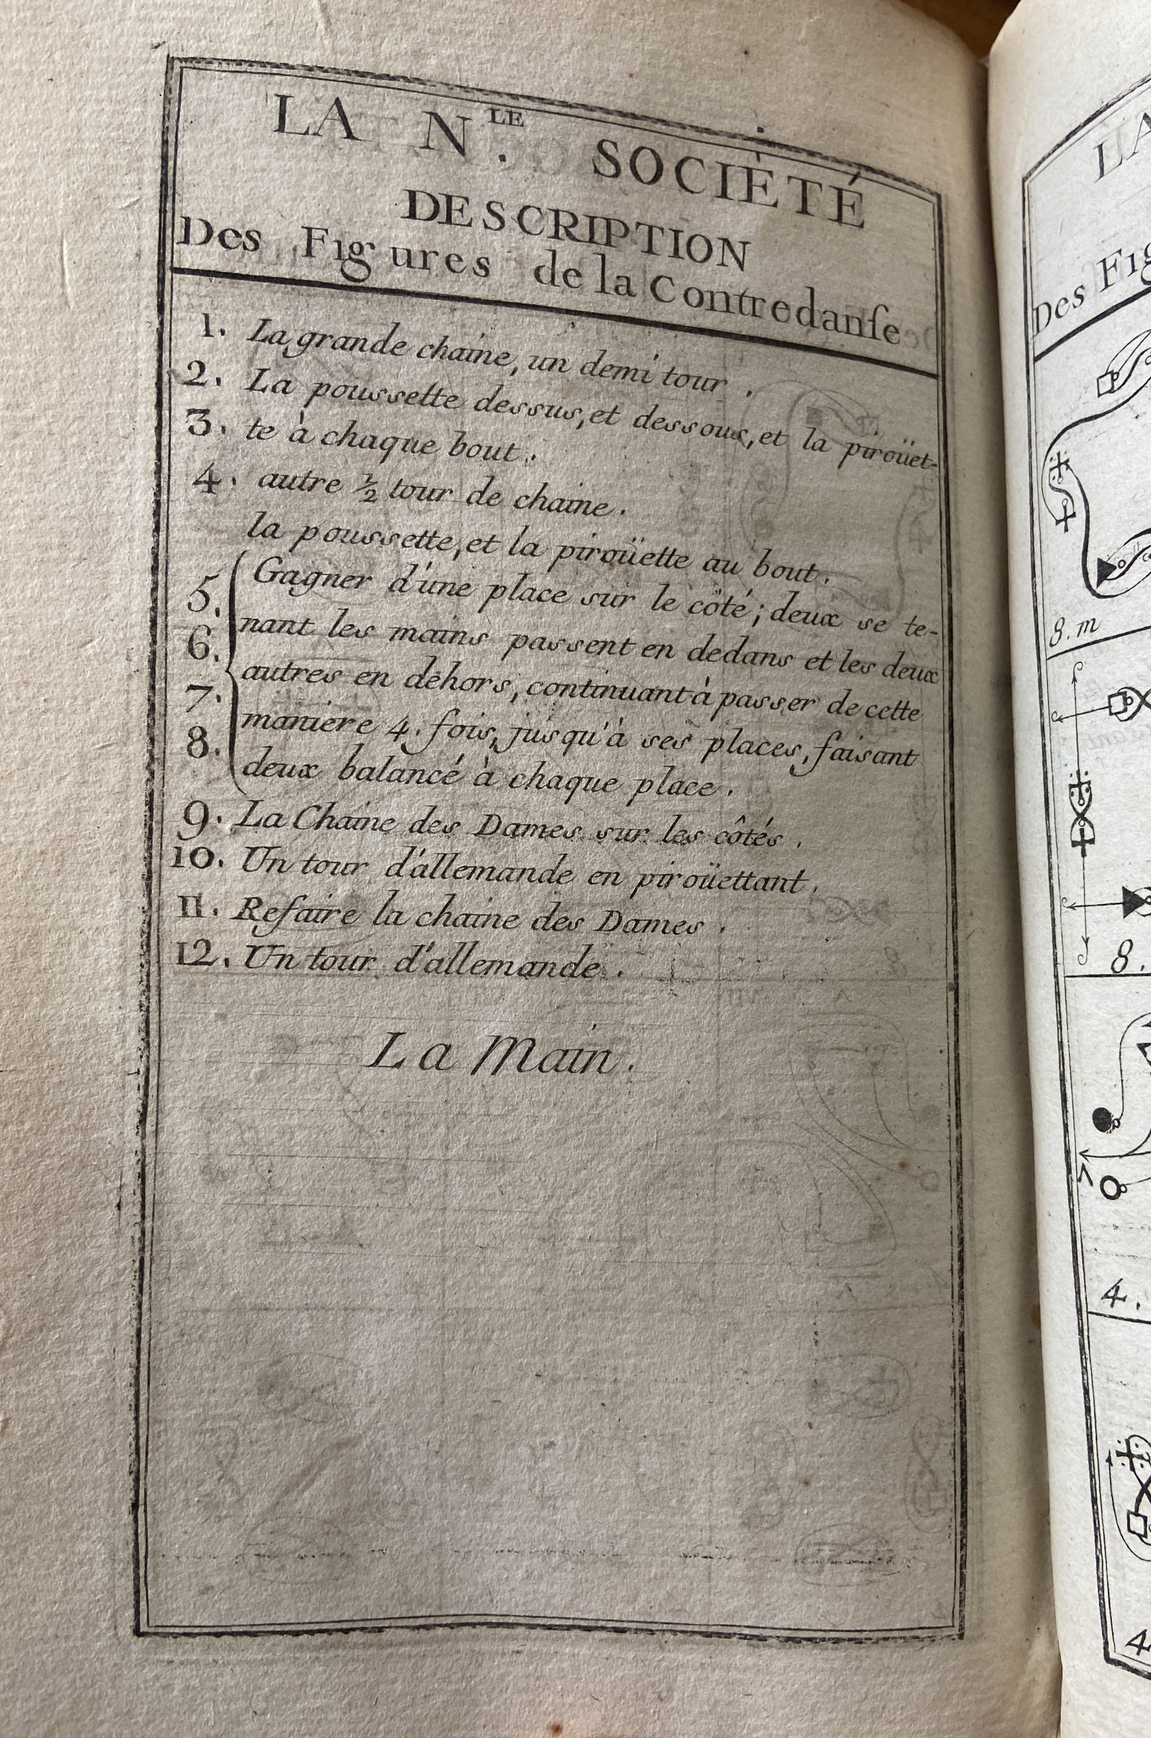 LA N.LE SOCIÈTÉ
DESCRIPTION
Des Figures de la Contredanse
1. La grande chaine, un demi tour.
2. La poussette dessus, et dessous, et la piroüet-
3. te à chaque bout.
4. autre ½ tour de chaine.
la poussette, et la piroüette au bout.
5. Gagner d'une place sur le côté; deux se te-
6. nant les mains passent en dedans et les deux
7. autres en dehors, continuant à passer de cette
8. maniere 4. fois, jusqu'à ses places, faisant
deux balancé à chaque place.
9. La Chaine des Dames sur les côtés.
10. Un tour d'allemande en piroüettant.
11. Refaire la chaine des Dames.
12. Un tour d'allemande.
La Main.
LA
Des Fig
8. m
8.
4.
4